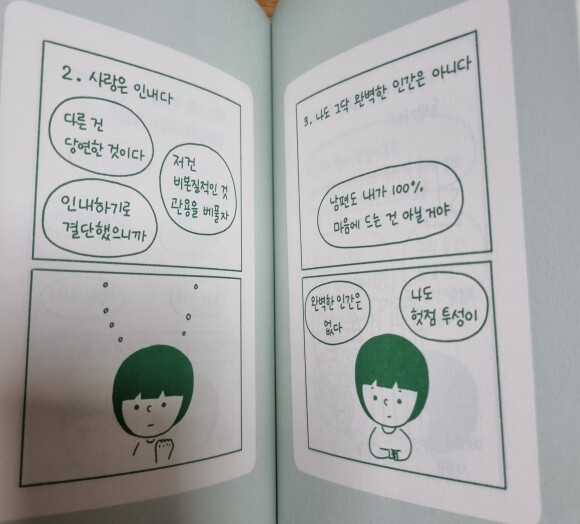 2. 사랑은 인내다
다른 건
당연한 것이다
저건
비본질적인 것
관용을 베풀자
인내하기로
결단했으니까
3. 나도 그닥 완벽한 인간은 아니다
남편도 내가 100%
마음에 드는 건 아닐 거야
완벽한 인간은
없다
나도
헛점 투성이